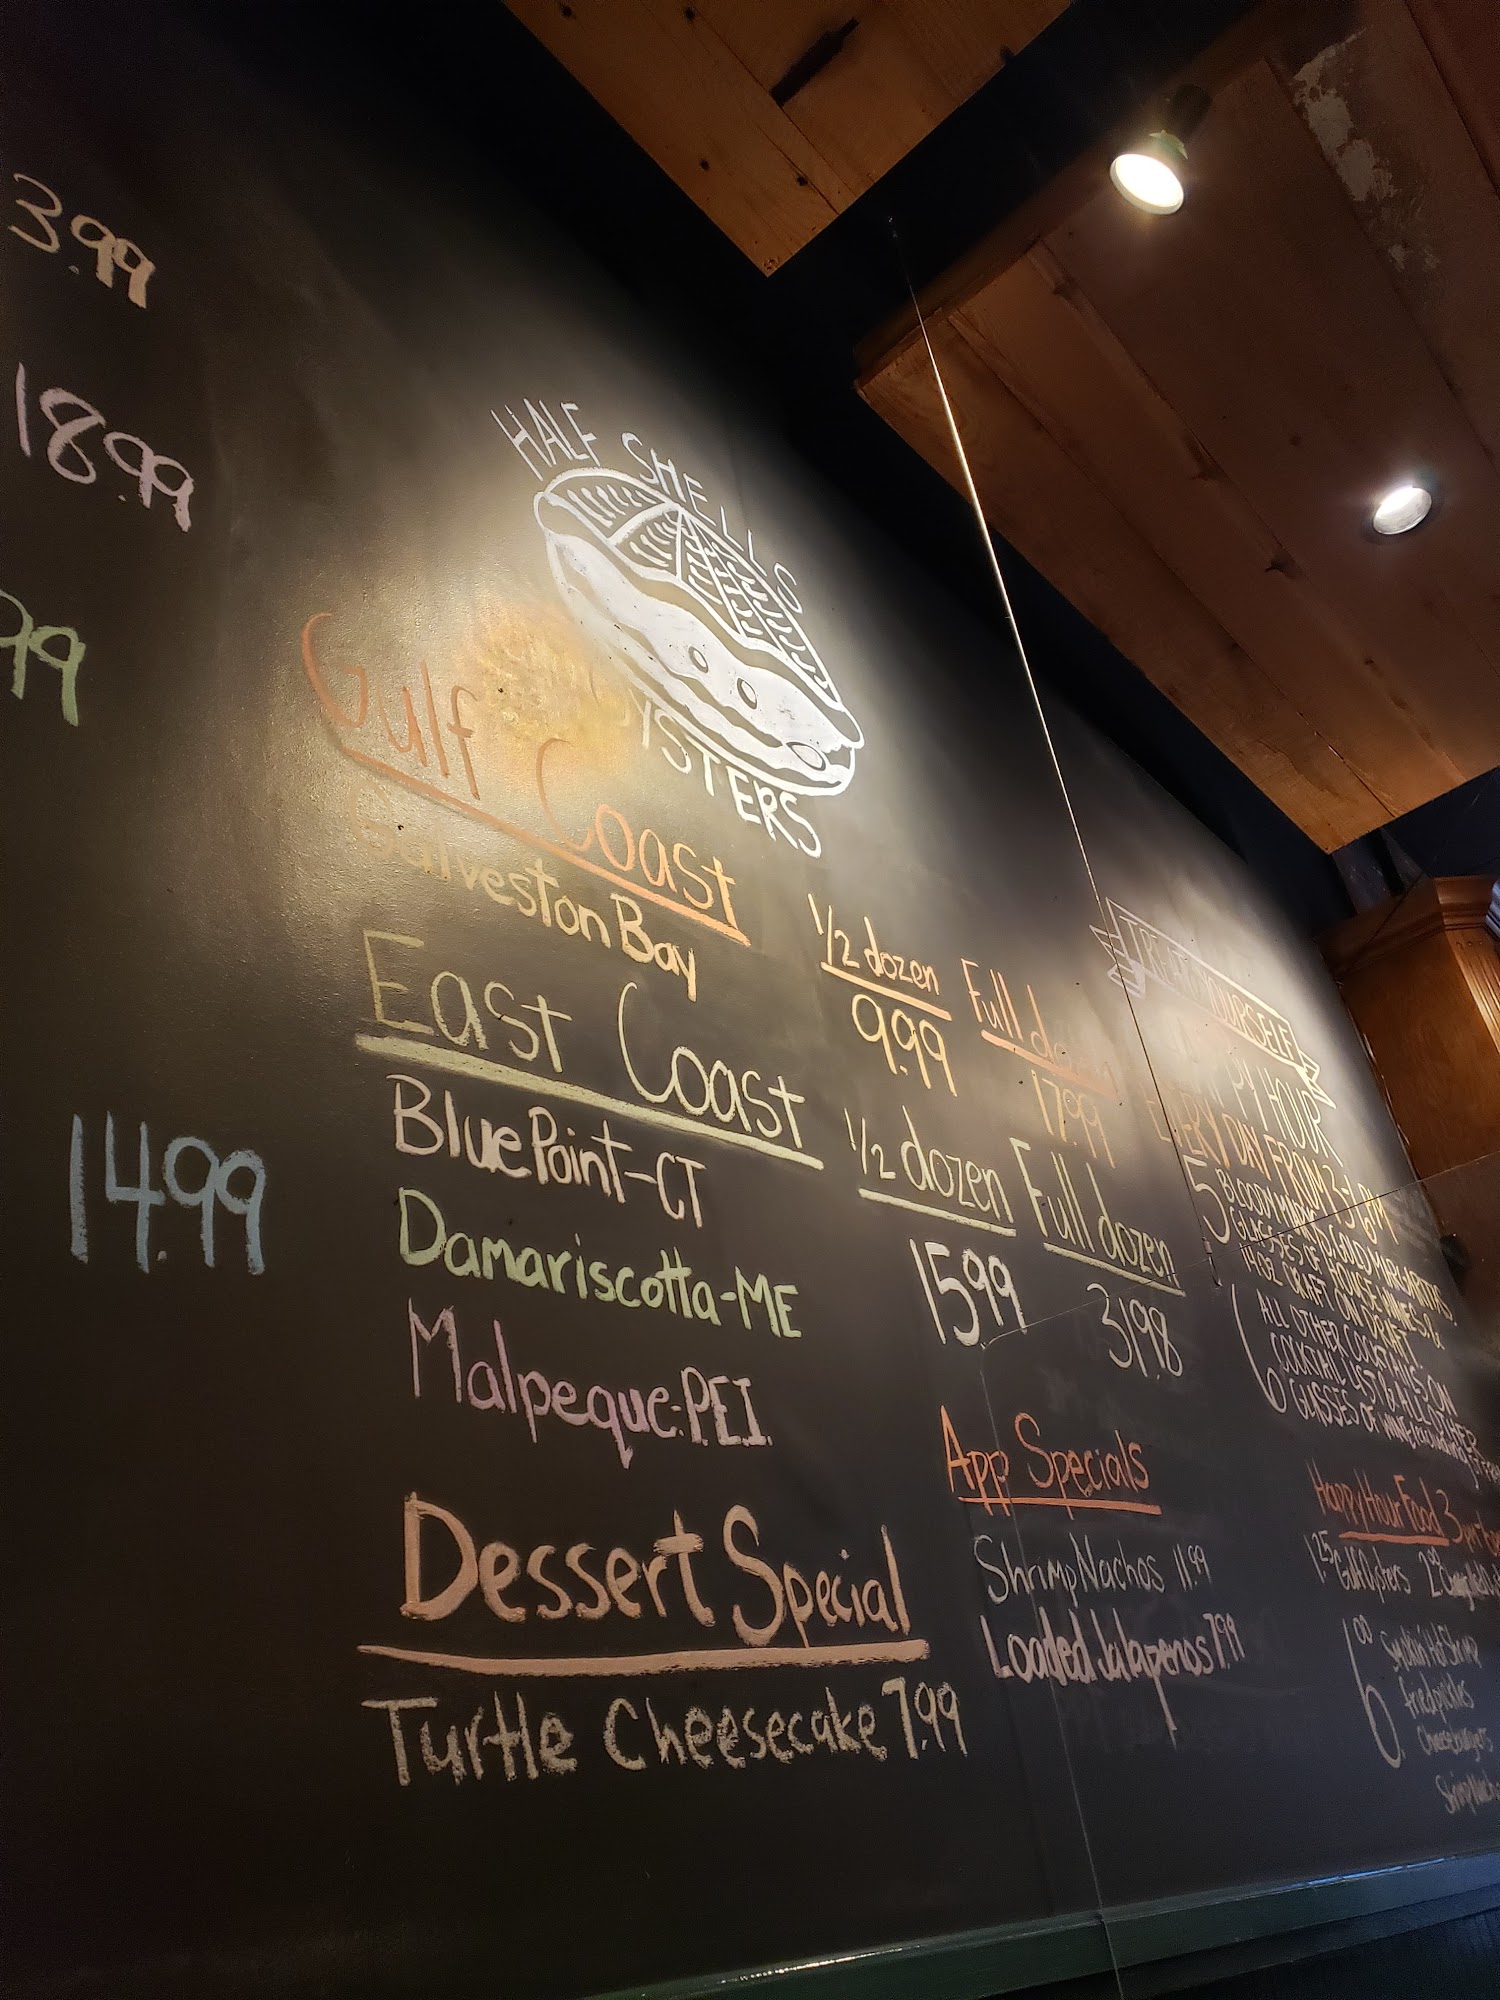 3.99
18.99
99
14.99
HALF SHELLS
OYSTERS
Gulf Coast
Galveston Bay
1/2 dozen Full dozen
9.99 17.99
East Coast
1/2 dozen Full dozen
Blue Point-CT
Damariscotta-ME
15.99 31.98
Malpeque-P.E.I.
Dessert Special
Turtle Cheesecake 7.99
App Specials
Shrimp Nachos 11.99
Loaded Jalapenos 7.99
TREAT YOURSELF
HAPPY HOUR
EVERY DAY FROM 3-6 PM
5 BLOODY MARYS, GOLD MARGARITAS,
GLASSES OF HOUSE WINES, &
14 OZ CRAFT ON DRAFT
6 ALL OTHER COCKTAILS ON
COCKTAIL LIST & ALL OTHER
GLASSES OF WINE
Happy Hour Food 3
1.25 Gulf Oysters 2.00
6.00
Fried Pickles
Cheeseburgers
Shrimp